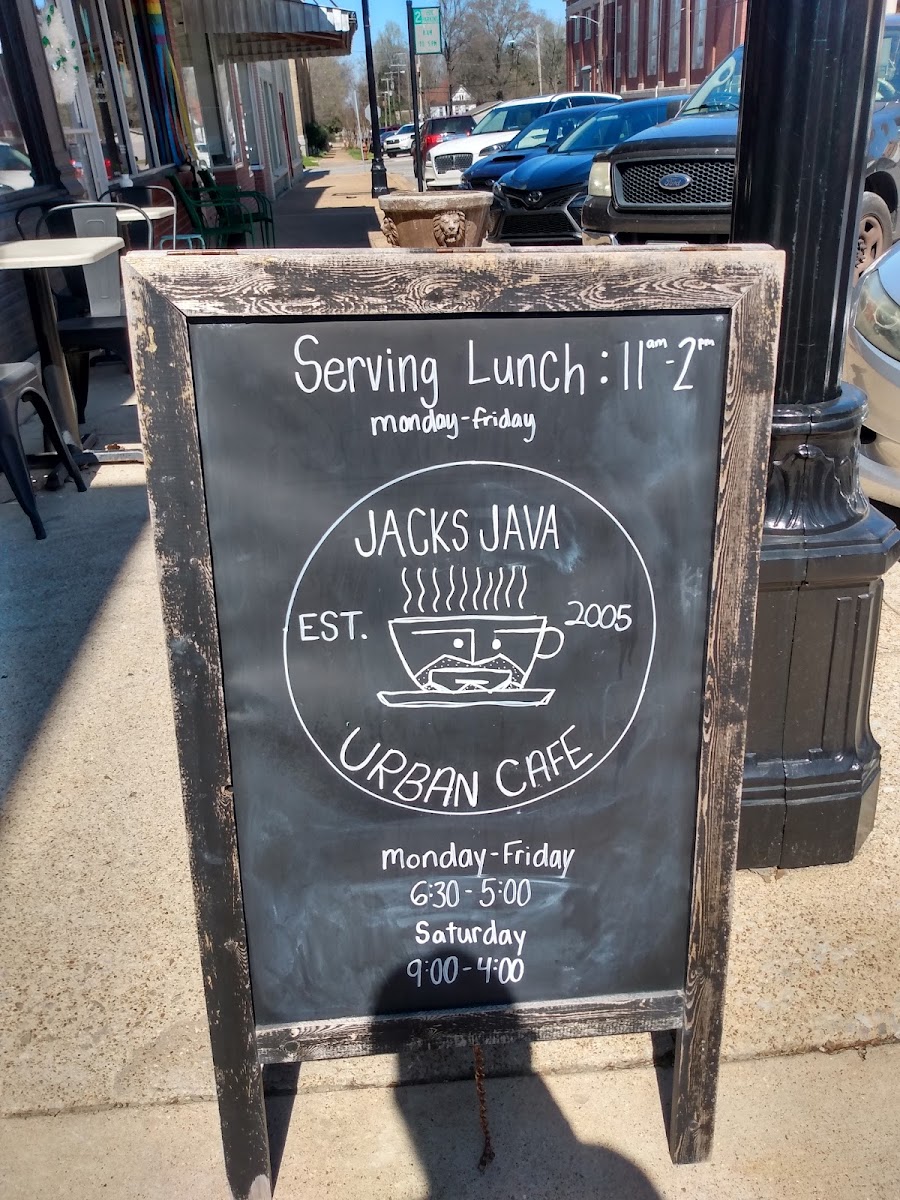 Serving Lunch: 11am-2pm
monday-friday
JACKS JAVA
EST. 2005
URBAN CAFE
monday-Friday
6:30-5:00
Saturday
9:00-4:00
Ford